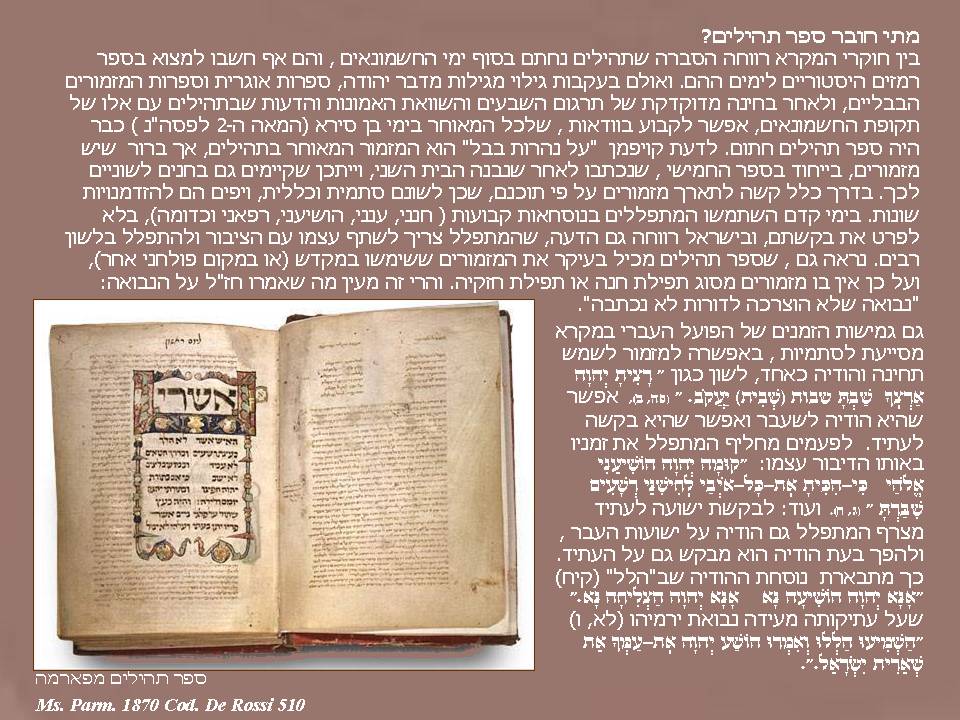 מתי חובר ספר תהילים?
בין חוקרי המקרא רווחה הסברה שתהילים נחתם בסוף ימי החשמונאים , והם אף חשבו למצוא בספר
רמזים היסטוריים לימים ההם. ואולם בעקבות גילוי מגילות מדבר יהודה, ספרות אוגרית וספרות המזמורים
הבבליים, ולאחר בחינה מדוקדקת של תרגום השבעים והשוואת האמונות והדעות שבתהילים עם אלו של
תקופת החשמונאים, אפשר לקבוע בוודאות , שלכל המאוחר בימי בן סירא (המאה ה-2 לפסה"נ ) כבר
היה ספר תהילים חתום. לדעת קויפמן "על נהרות בבל" הוא המזמור המאוחר בתהילים, אך ברור שיש
מזמורים, בייחוד בספר החמישי , שנכתבו לאחר שנבנה הבית השני, וייתכן שקיימים גם בחנים לשוניים
לכך. בדרך כלל קשה לתארך מזמורים על פי תוכנם, שכן לשונם סתמית וכללית, ויפים הם להזדמנויות
שונות. בימי קדם השתמשו המתפללים בנוסחאות קבועות ( חנני, ענני, הושיעני, רפאני וכדומה), בלא
לפרט את בקשתם, ובישראל רווחה גם הדעה, שהמתפלל צריך לשתף עצמו עם הציבור ולהתפלל בלשון
רבים. נראה גם , שספר תהילים מכיל בעיקר את המזמורים ששימשו במקדש (או במקום פולחני אחר),
ועל כן אין בו מזמורים מסוג תפילת חנה או תפילת חזקיה. והרי זה מעין מה שאמרו חז"ל על הנבואה:
"נבואה שלא הוצרכה לדורות לא נכתבה".
גם גמישות הזמנים של הפועל העברי במקרא
מסייעת לסתמיות , באפשרה למזמור לשמש
תחינה והודיה כאחד, לשון כגון " רָצִיתָ יְהוָה
אַרְצֶךָ שַׁבְתָּ שבות (שְׁבִית) יַעֲקֹב. " (פה, ב), אפשר
שהיא הודיה לשעבר ואפשר שהיא בקשה
לעתיד. לפעמים מחליף המתפלל את זמניו
באותו הדיבור עצמו: "קוּמָה יְהוָה הוֹשִׁיעֵנִי
אֱלֹהַי כִּי-הִכִּיתָ אֶת-כָּל-אֹיְבַי לֶחִי שִׁנֵּי רְשָׁעִים
שִׁבַּרְתָּ " (ג, ח). ועוד: לבקשת ישועה לעתיד
מצרף המתפלל גם הודיה על ישועות העבר ,
ולהפך בעת הודיה הוא מבקש גם על העתיד.
כך מתבארת נוסחת ההודיה שב"הלל" (קיח)
"אָנָּא יְהוָה הוֹשִׁיעָה נָּא אָנָּא יְהוָה הַצְלִיחָה נָּא."
שעל עתיקותה מעידה נבואת ירמיהו (לא, ו)
"הַשְׁמִיעוּ הַלְלוּ וְאִמְרוּ הוֹשַׁע יְהוָה אֶת-עַמְּךָ אֵת
שְׁאֵרִית יִשְׂרָאֵל.".
אשרי
האיש אשר לא הלך
ספר תהילים מפארמה
Ms. Parm. 1870 Cod. De Rossi 510